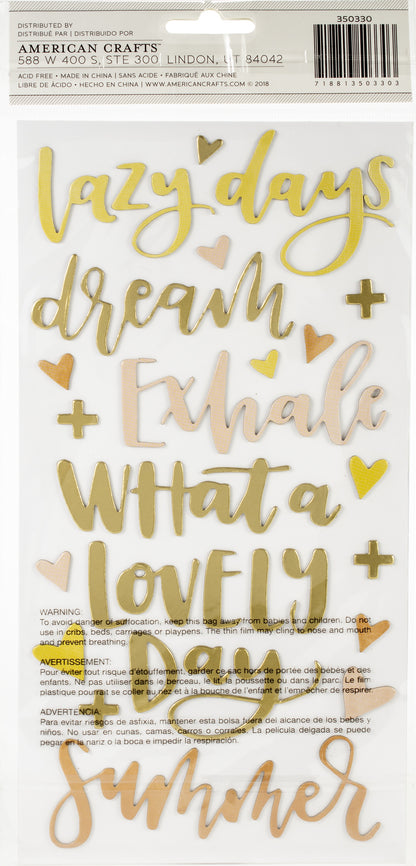 DISTRIBUTED BY
DISTRIBUÉ PAR | DISTRIBUIDO POR
AMERICAN CRAFTS™
588 W 400 S, STE 300 LINDON, UT 84042
ACID FREE • MADE IN CHINA | SANS ACIDE • FABRIQUÉ AUX CHINE
LIBRE DE ÁCIDO • HECHO EN CHINA | WWW.AMERICANCRAFTS.COM © 2018
350330
718813503303
lazy days
dream
Exhale
WHat a
LOVELY
Day
WARNING:
To avoid danger of suffocation, keep this bag away from babies and children. Do not
use in cribs, beds, carriages or playpens. The thin film may cling to nose and mouth
and prevent breathing.
AVERTISSEMENT:
Pour éviter tout risque d'étouffement, garder ce sac hors de portée des bébés et des
enfants. Ne pas utiliser dans le berceau, le lit, la poussette ou dans le parc. Le film
plastique pourrait se coller au nez et à la bouche de l'enfant et l'empêcher de respirer.
ADVERTENCIA:
Para evitar riesgos de asfixia, mantener esta bolsa fuera del alcance de los bebés y
niños. No usar en cunas, camas, carros o corrales. La película delgada se puede
pegar en la nariz o la boca e impedir la respiración.
Summer